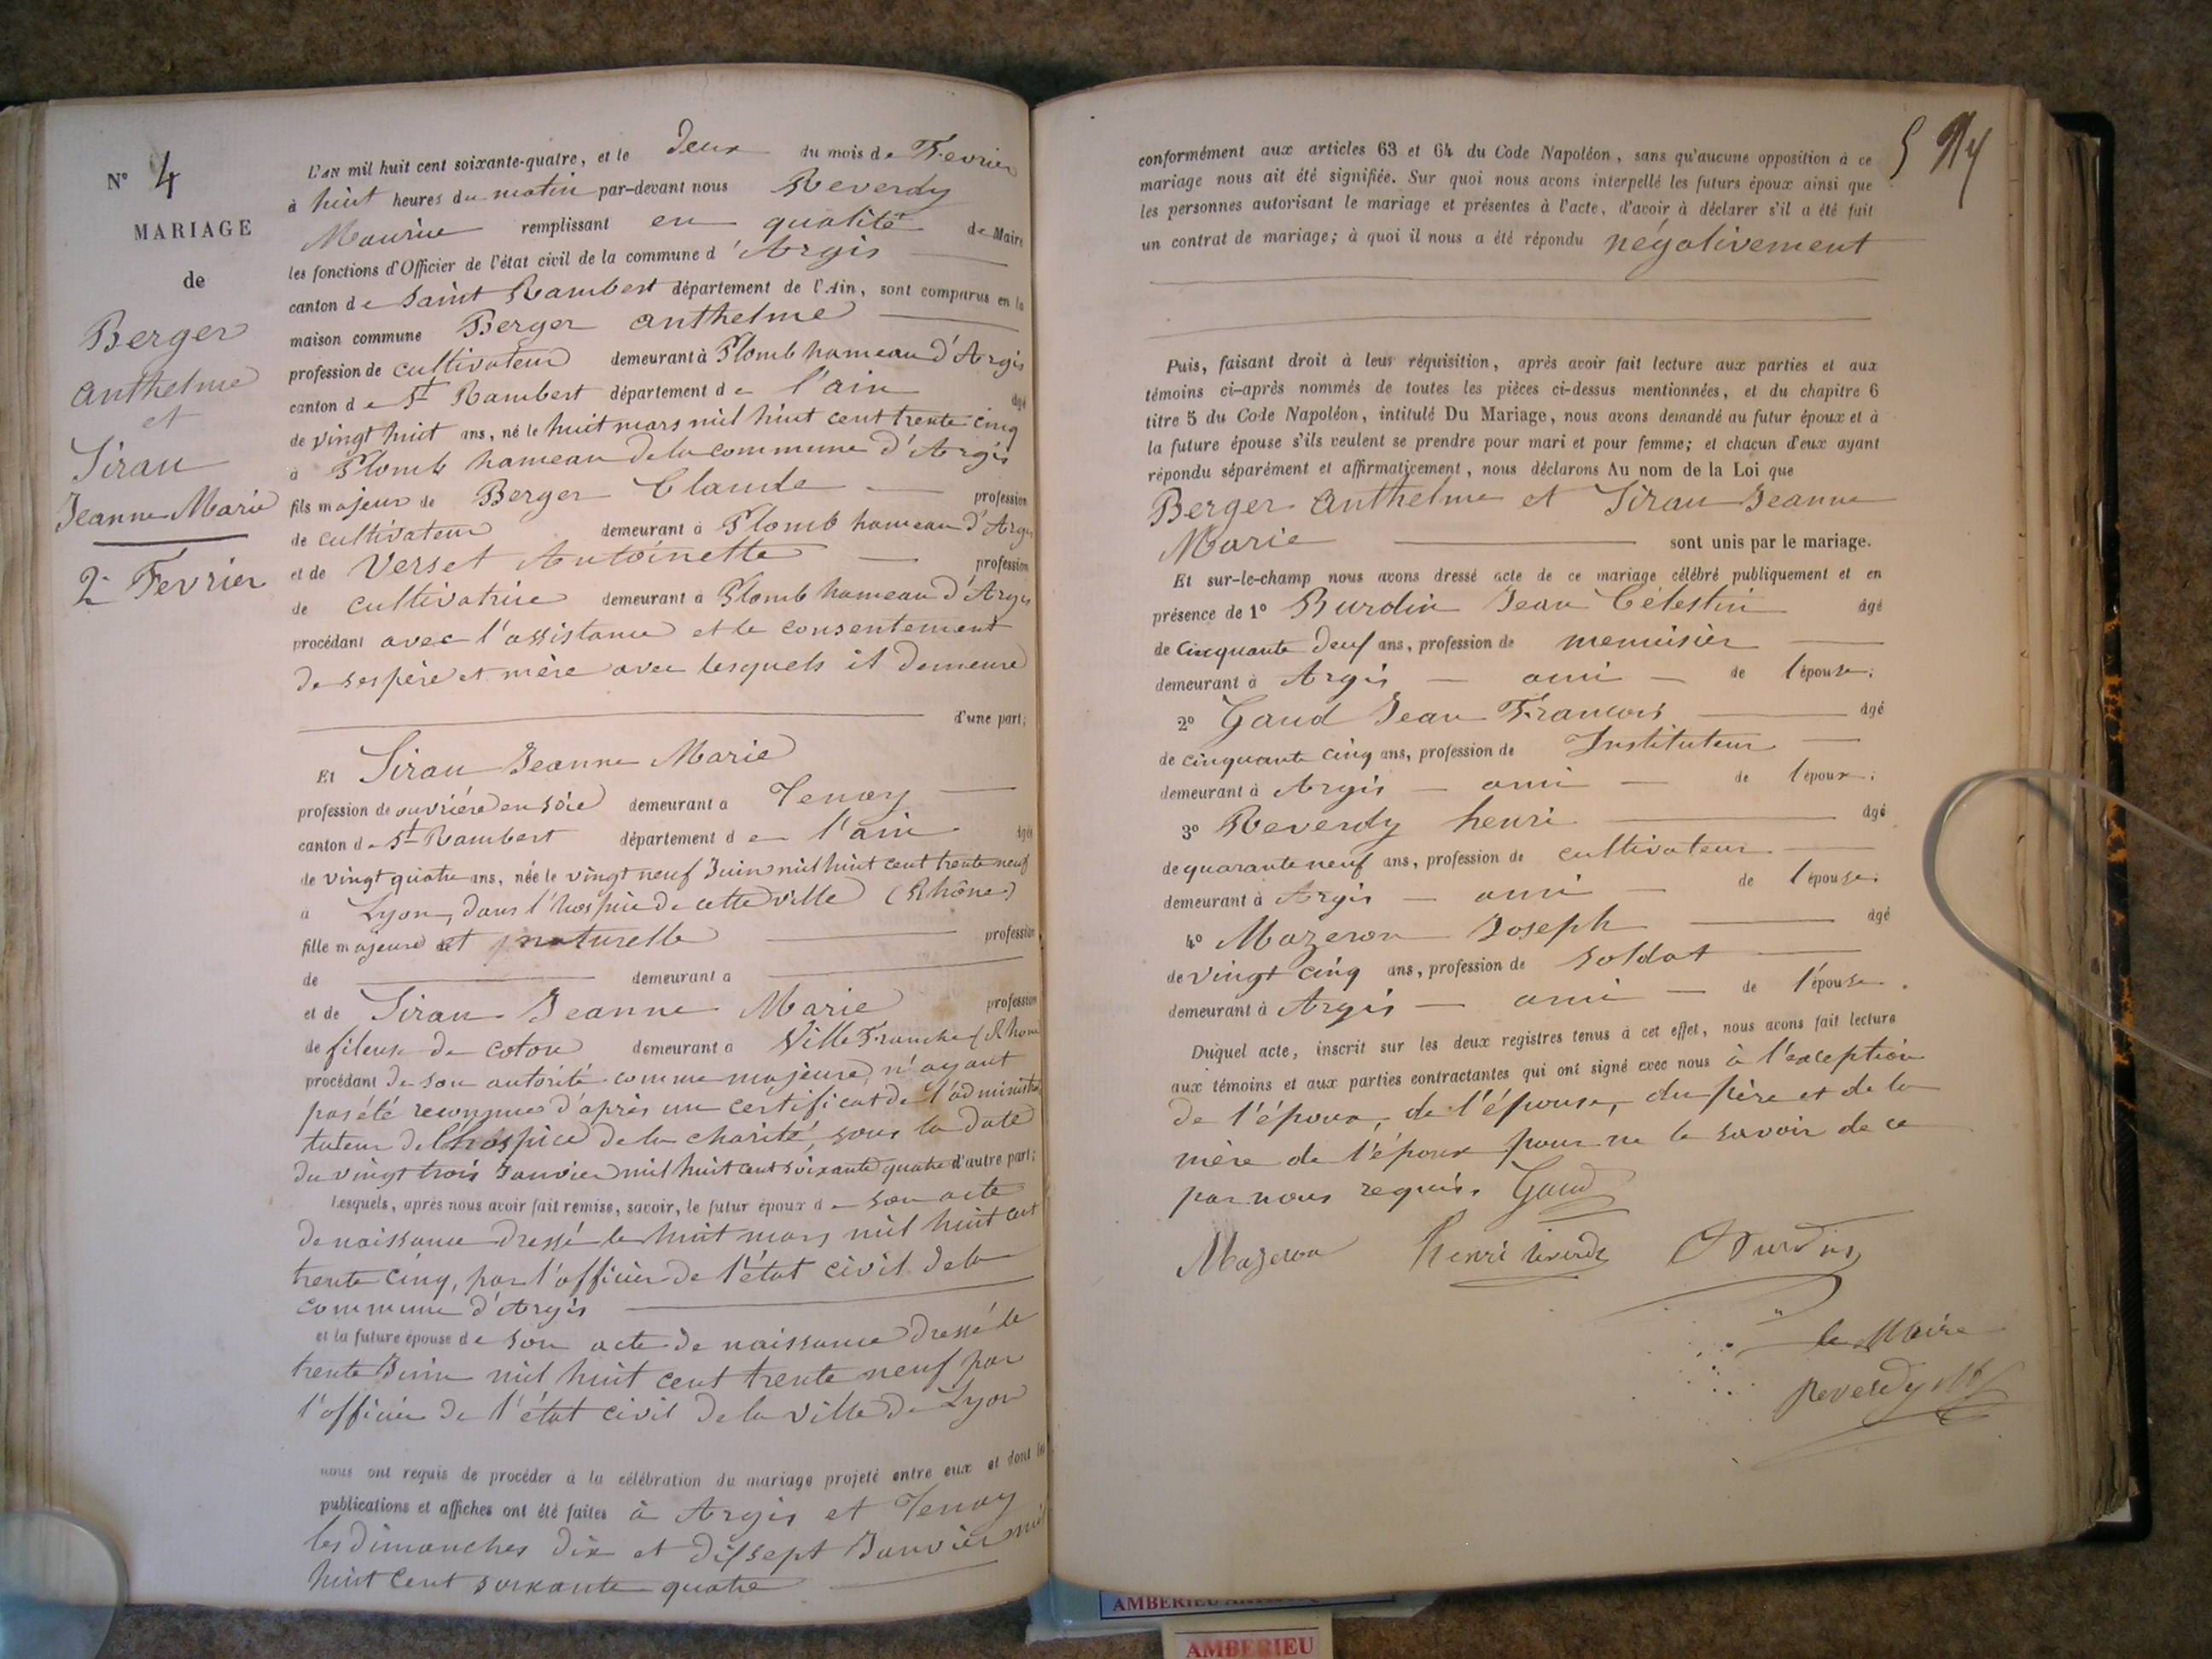 N° 4
MARIAGE
de
Berger
anthelme
et
Siran
Jeanne Marie
2 Fevrier
L'AN mil huit cent soixante-quatre, et le deux du mois de Fevrier
à huit heures du matin par-devant nous Reverdy
Maurice remplissant en qualité de Maire
les fonctions d'Officier de l'état civil de la commune d'Argis
canton de Saint Rambert département de l'Ain, sont comparus en la
maison commune Berger anthelme
profession de cultivateur demeurant à Plomb hameau d'Argis
canton de St Rambert département de l'ain âgé
de vingt huit ans, né le huit mars mil huit cent trente cinq
à Plomb hameau de la commune d'Argis
fils majeur de Berger Claude profession
de cultivateur demeurant à Plomb hameau d'Argis
et de Verset Antoinette profession
de cultivatrice demeurant à Plomb hameau d'Argis
procédant avec l'assistance et le consentement
de ses père et mère avec lesquels il demeure
d'une part;
Et Siran Jeanne Marie
profession de ouvrière en soie demeurant à Tenay
canton de St Rambert département de l'ain âgée
de vingt quatre ans, née le vingt neuf Juin mil huit cent trente neuf
à Lyon, dans l'hospice de cette ville (Rhône)
fille majeure et naturelle profession
de demeurant à
et de Siran Jeanne Marie profession
de fileuse de coton demeurant à Villefranche (Rhone
procédant de son autorité comme majeure, n'ayant
pas été reconnue d'après un certificat de l'administra
tateur de l'hospice de la charité, sous la date
du vingt trois Janvier mil huit cent soixante quatre d'autre part;
Lesquels, après nous avoir fait remise, savoir, le futur époux de son acte
de naissance dressé le huit mars mil huit cent
trente cinq, par l'officier de l'état civil de la
commune d'Argis
et la future épouse de son acte de naissance dressé le
trente Juin mil huit cent trente neuf par
l'officier de l'état civil de la ville de Lyon
nous ont requis de procéder à la célébration du mariage projeté entre eux et dont les
publications et affiches ont été faites à Argis et Tenay
les dimanches dix et dissept Janvier mil
huit cent soixante quatre
conformément aux articles 63 et 64 du Code Napoléon, sans qu'aucune opposition à ce
mariage nous ait été signifiée. Sur quoi nous avons interpellé les futurs époux ainsi que
les personnes autorisant le mariage et présentes à l'acte, d'avoir à déclarer s'il a été fait
un contrat de mariage; à quoi il nous a été répondu négativement
Puis, faisant droit à leur réquisition, après avoir fait lecture aux parties et aux
témoins ci-après nommés de toutes les pièces ci-dessus mentionnées, et du chapitre 6
titre 5 du Code Napoléon, intitulé Du Mariage, nous avons demandé au futur époux et à
la future épouse s'ils veulent se prendre pour mari et pour femme; et chacun d'eux ayant
répondu séparément et affirmativement, nous déclarons Au nom de la Loi que
Berger anthelme et Siran Jeanne
Marie sont unis par le mariage.
Et sur-le-champ nous avons dressé acte de ce mariage célébré publiquement et en
présence de 1° Burdin Jean Célestin âgé
de cinquante deuf ans, profession de menuisier
demeurant à Argis ami de l'épouse;
2° Gaud Jean Francois âgé
de cinquante cinq ans, profession de Instituteur
demeurant à Argis ami de l'époux;
3° Reverdy henri âgé
de quarante neuf ans, profession de cultivateur
demeurant à Argis ami de l'épouse;
4° Mazeron Joseph âgé
de vingt cinq ans, profession de soldat
demeurant à Argis ami de l'épouse.
Duquel acte, inscrit sur les deux registres tenus à cet effet, nous avons fait lecture
aux témoins et aux parties contractantes qui ont signé avec nous à l'exception
de l'époux, de l'épouse, du père et de la
mère de l'époux pour ne le savoir de ce
par nous requis. Gaud
Mazeron Henri Reverdy Burdin
le Maire
Reverdy
AMBERIEU
AMBERIEU